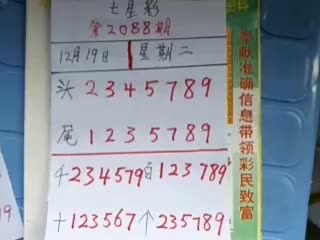 七星彩
第2088期
12月19日 星期二
头 2345789
尾 1235789
千234579百123789
十123567个235789
奉献准确信息带领彩民致富
料